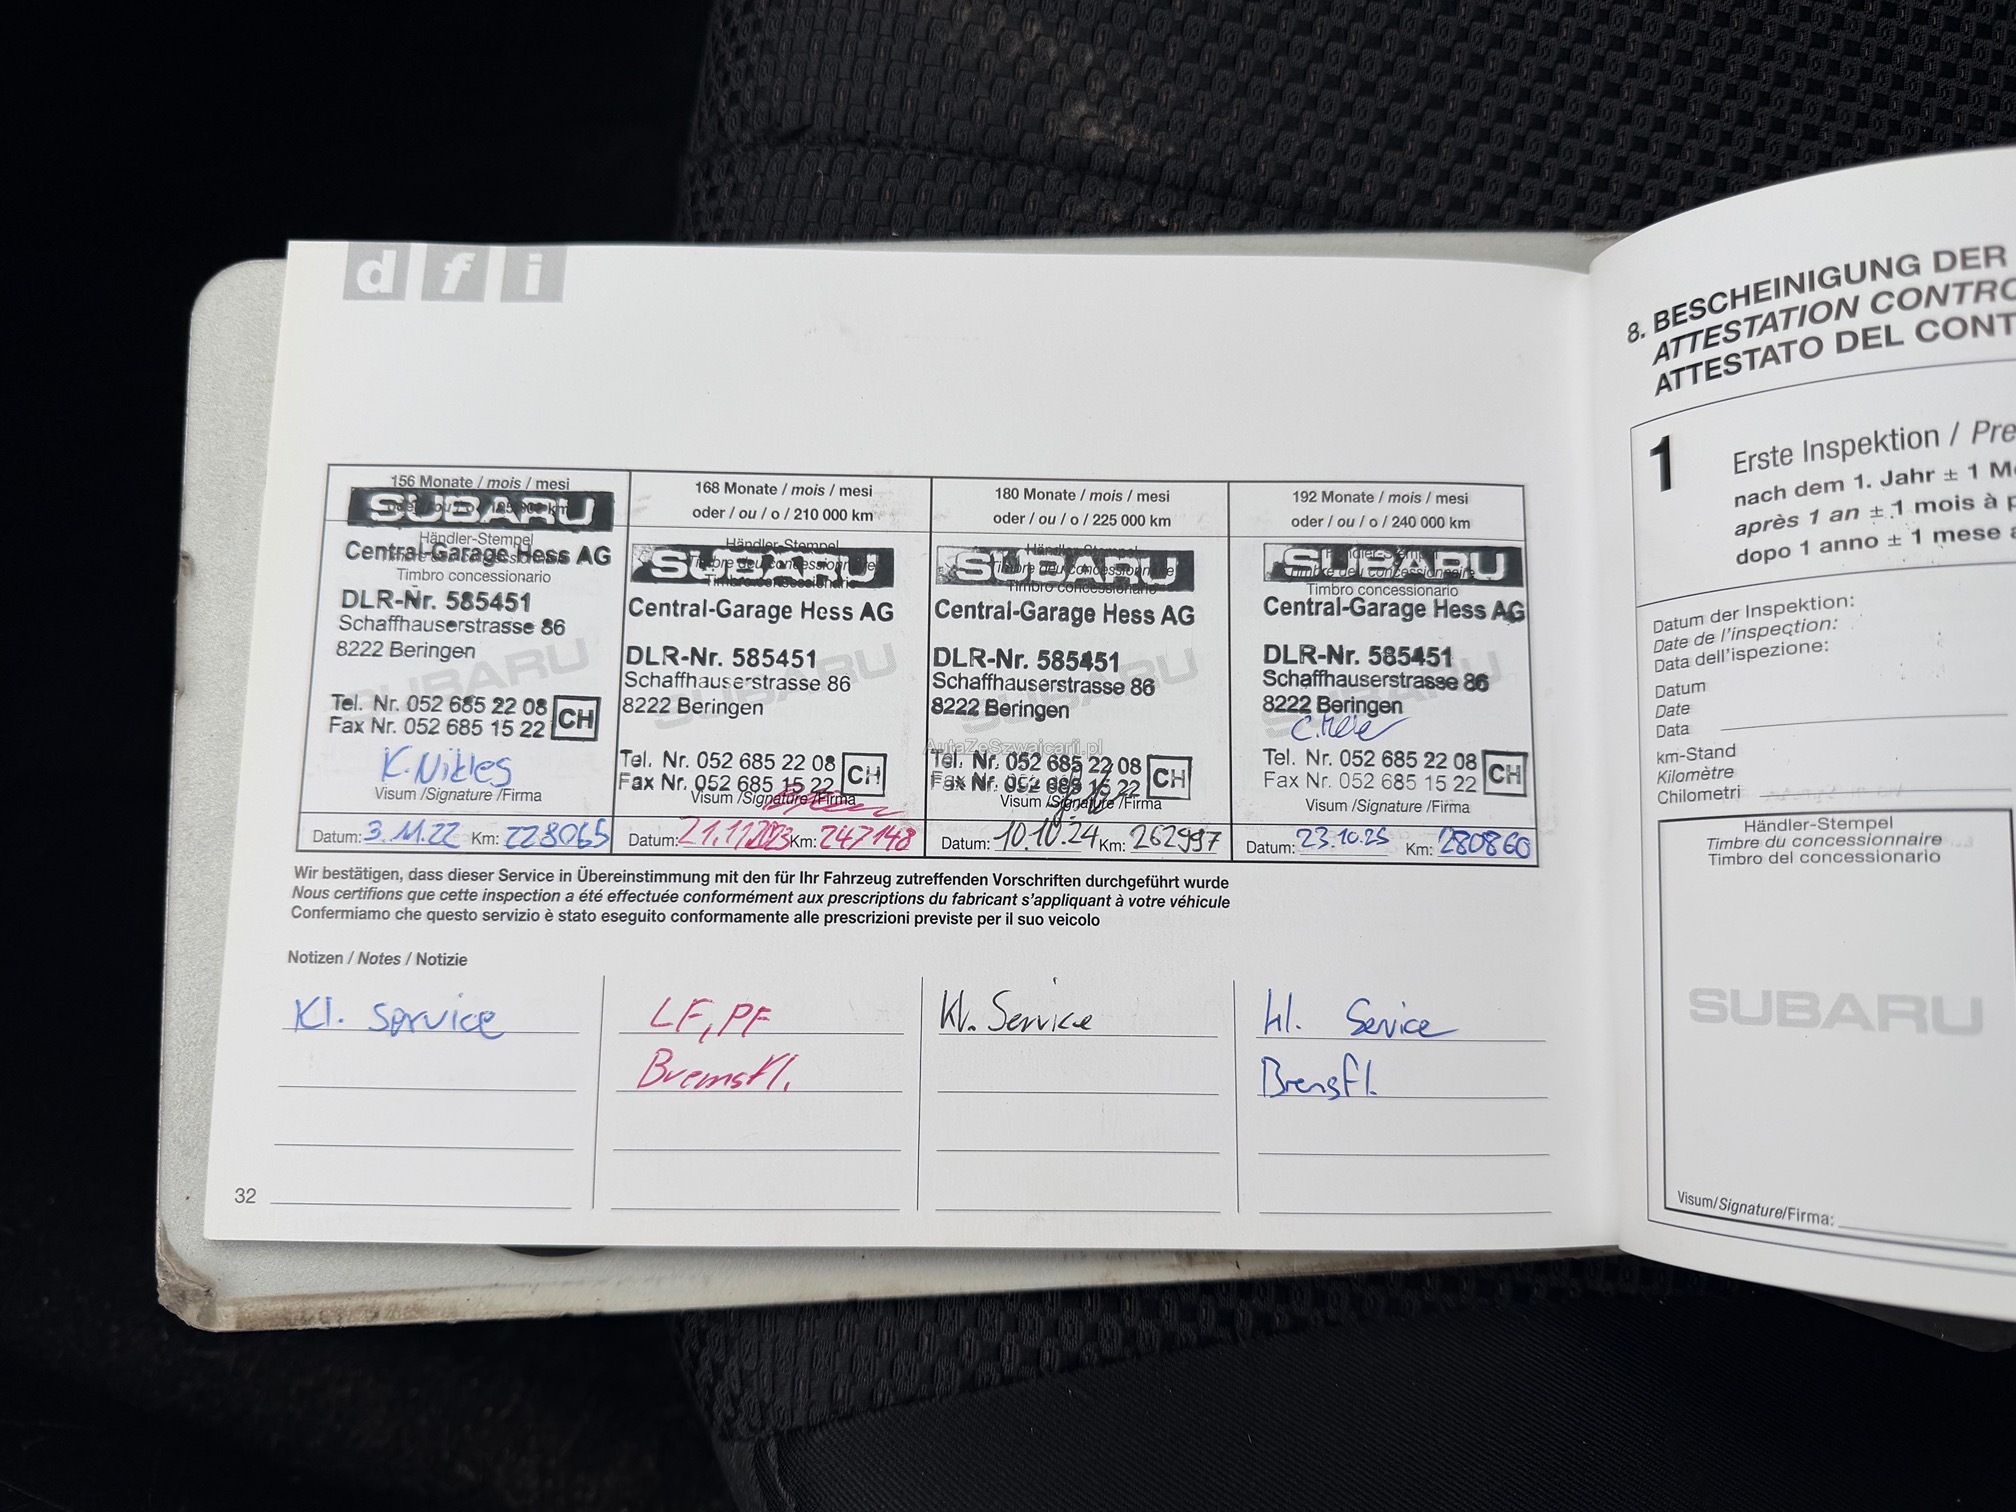 d f i
156 Monate / mois / mesi
SUBARU
Händler-Stempel
Central-Garage Hess AG
Timbro concessionario
DLR-Nr. 585451
Schaffhauserstrasse 86
8222 Beringen
Tel. Nr. 052 685 22 08
Fax Nr. 052 685 15 22
CH
K. Nikles
Visum /Signature /Firma
Datum: 3.11.22 Km: 228065
168 Monate / mois / mesi
oder / ou / o / 210 000 km
Händler-Stempel
SUBARU
Timbro concessionario
Central-Garage Hess AG
DLR-Nr. 585451
Schaffhauserstrasse 86
8222 Beringen
Tel. Nr. 052 685 22 08
Fax Nr. 052 685 15 22
CH
Visum /Signature /Firma
Datum: 21.11.2023 Km: 247148
180 Monate / mois / mesi
oder / ou / o / 225 000 km
Händler-Stempel
SUBARU
Timbro concessionario
Central-Garage Hess AG
DLR-Nr. 585451
Schaffhauserstrasse 86
8222 Beringen
AutaZeSzwajcarii.pl
Tel. Nr. 052 685 22 08
Fax Nr. 052 685 15 22
CH
Visum /Signature /Firma
Datum: 10.10.24 Km: 262997
192 Monate / mois / mesi
oder / ou / o / 240 000 km
Händler-Stempel
SUBARU
Timbro concessionario
Central-Garage Hess AG
DLR-Nr. 585451
Schaffhauserstrasse 86
8222 Beringen
Tel. Nr. 052 685 22 08
Fax Nr. 052 685 15 22
CH
Visum /Signature /Firma
Datum: 23.10.25 Km: 280860
Wir bestätigen, dass dieser Service in Übereinstimmung mit den für Ihr Fahrzeug zutreffenden Vorschriften durchgeführt wurde
Nous certifions que cette inspection a été effectuée conformément aux prescriptions du fabricant s'appliquant à votre véhicule
Confermiamo che questo servizio è stato eseguito conformamente alle prescrizioni previste per il suo veicolo
Notizen / Notes / Notizie
Kl. Service
LF, PF
Bremsfl.
Kl. Service
Kl. Service
Bremsfl.
32
8. BESCHEINIGUNG DER
ATTESTATION
ATTESTATO DEL
1
Erste Inspektion /
nach dem 1. Jahr ± 1
après 1 an ± 1 mois à
dopo 1 anno ± 1 mese
Datum der Inspektion:
Date de l'inspection:
Data dell'ispezione:
Datum
Date
Data
km-Stand
Kilomètre
Chilometri
Händler-Stempel
Timbre du concessionnaire
Timbro del concessionario
SUBARU
Visum/Signature/Firma: